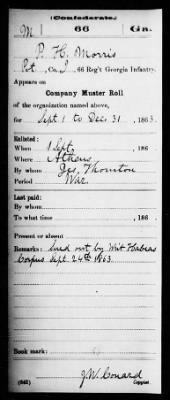 (Confederate.)
M 66 Ga.
P. H. Morris
Pvt, Co. J, 66 Reg't Georgia Infantry.
Appears on
Company Muster Roll
of the organization named above,
for Sept 1 to Dec. 31, 1863.
Enlisted:
When 1 Sept, 186
Where Athens
By whom Jas. Thornton
Period War
Last paid:
By whom
To what time , 186 .
Present or absent
Remarks: Sued out by Writ Habeas
Corpus Sept. 24th 1863.
Book mark:
(642) J. W. Conard
Copyist.